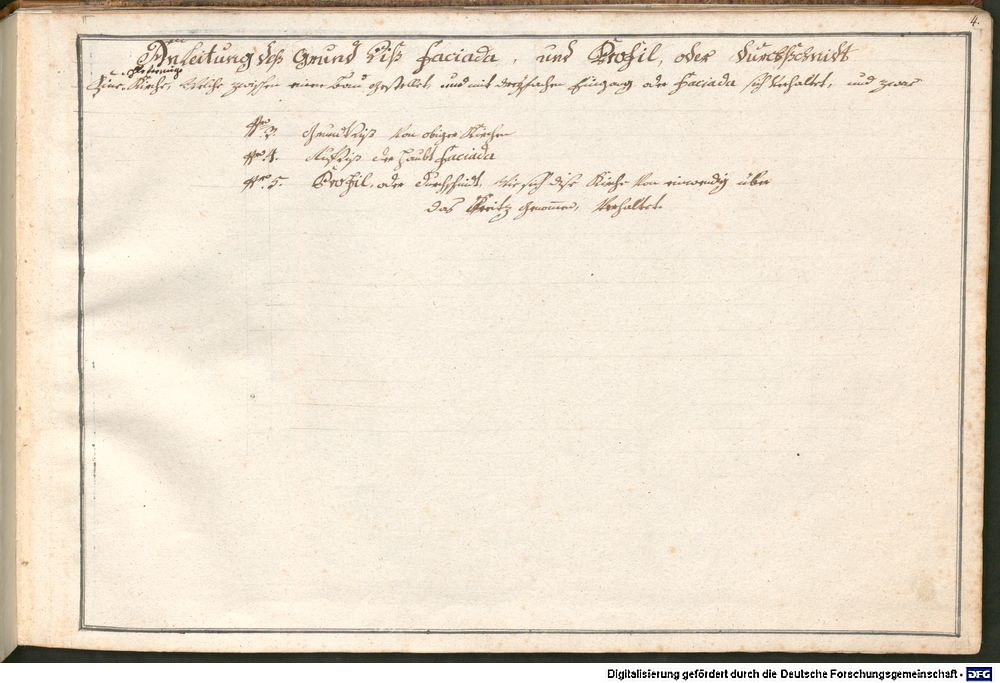 4.
Anleitung deß Grund Riß faciada, und Profil, oder Durchschnidt
Einer Kirche, Welche zwischen einen bau gestellet und mit dreyfachen Eingang oder faciada sich Verhaltet, und zwar
Nro. 3. Grundtriß Von obiger Kirchen
Nro. 4. Aufriß der Haubt faciada
Nro. 5. Profil, oder Durchschnidt, Wie sich dise Kirche Von einwendig über
das Kreitz genommen, Verhaltet.
Digitalisierung gefördert durch die Deutsche Forschungsgemeinschaft - DFG